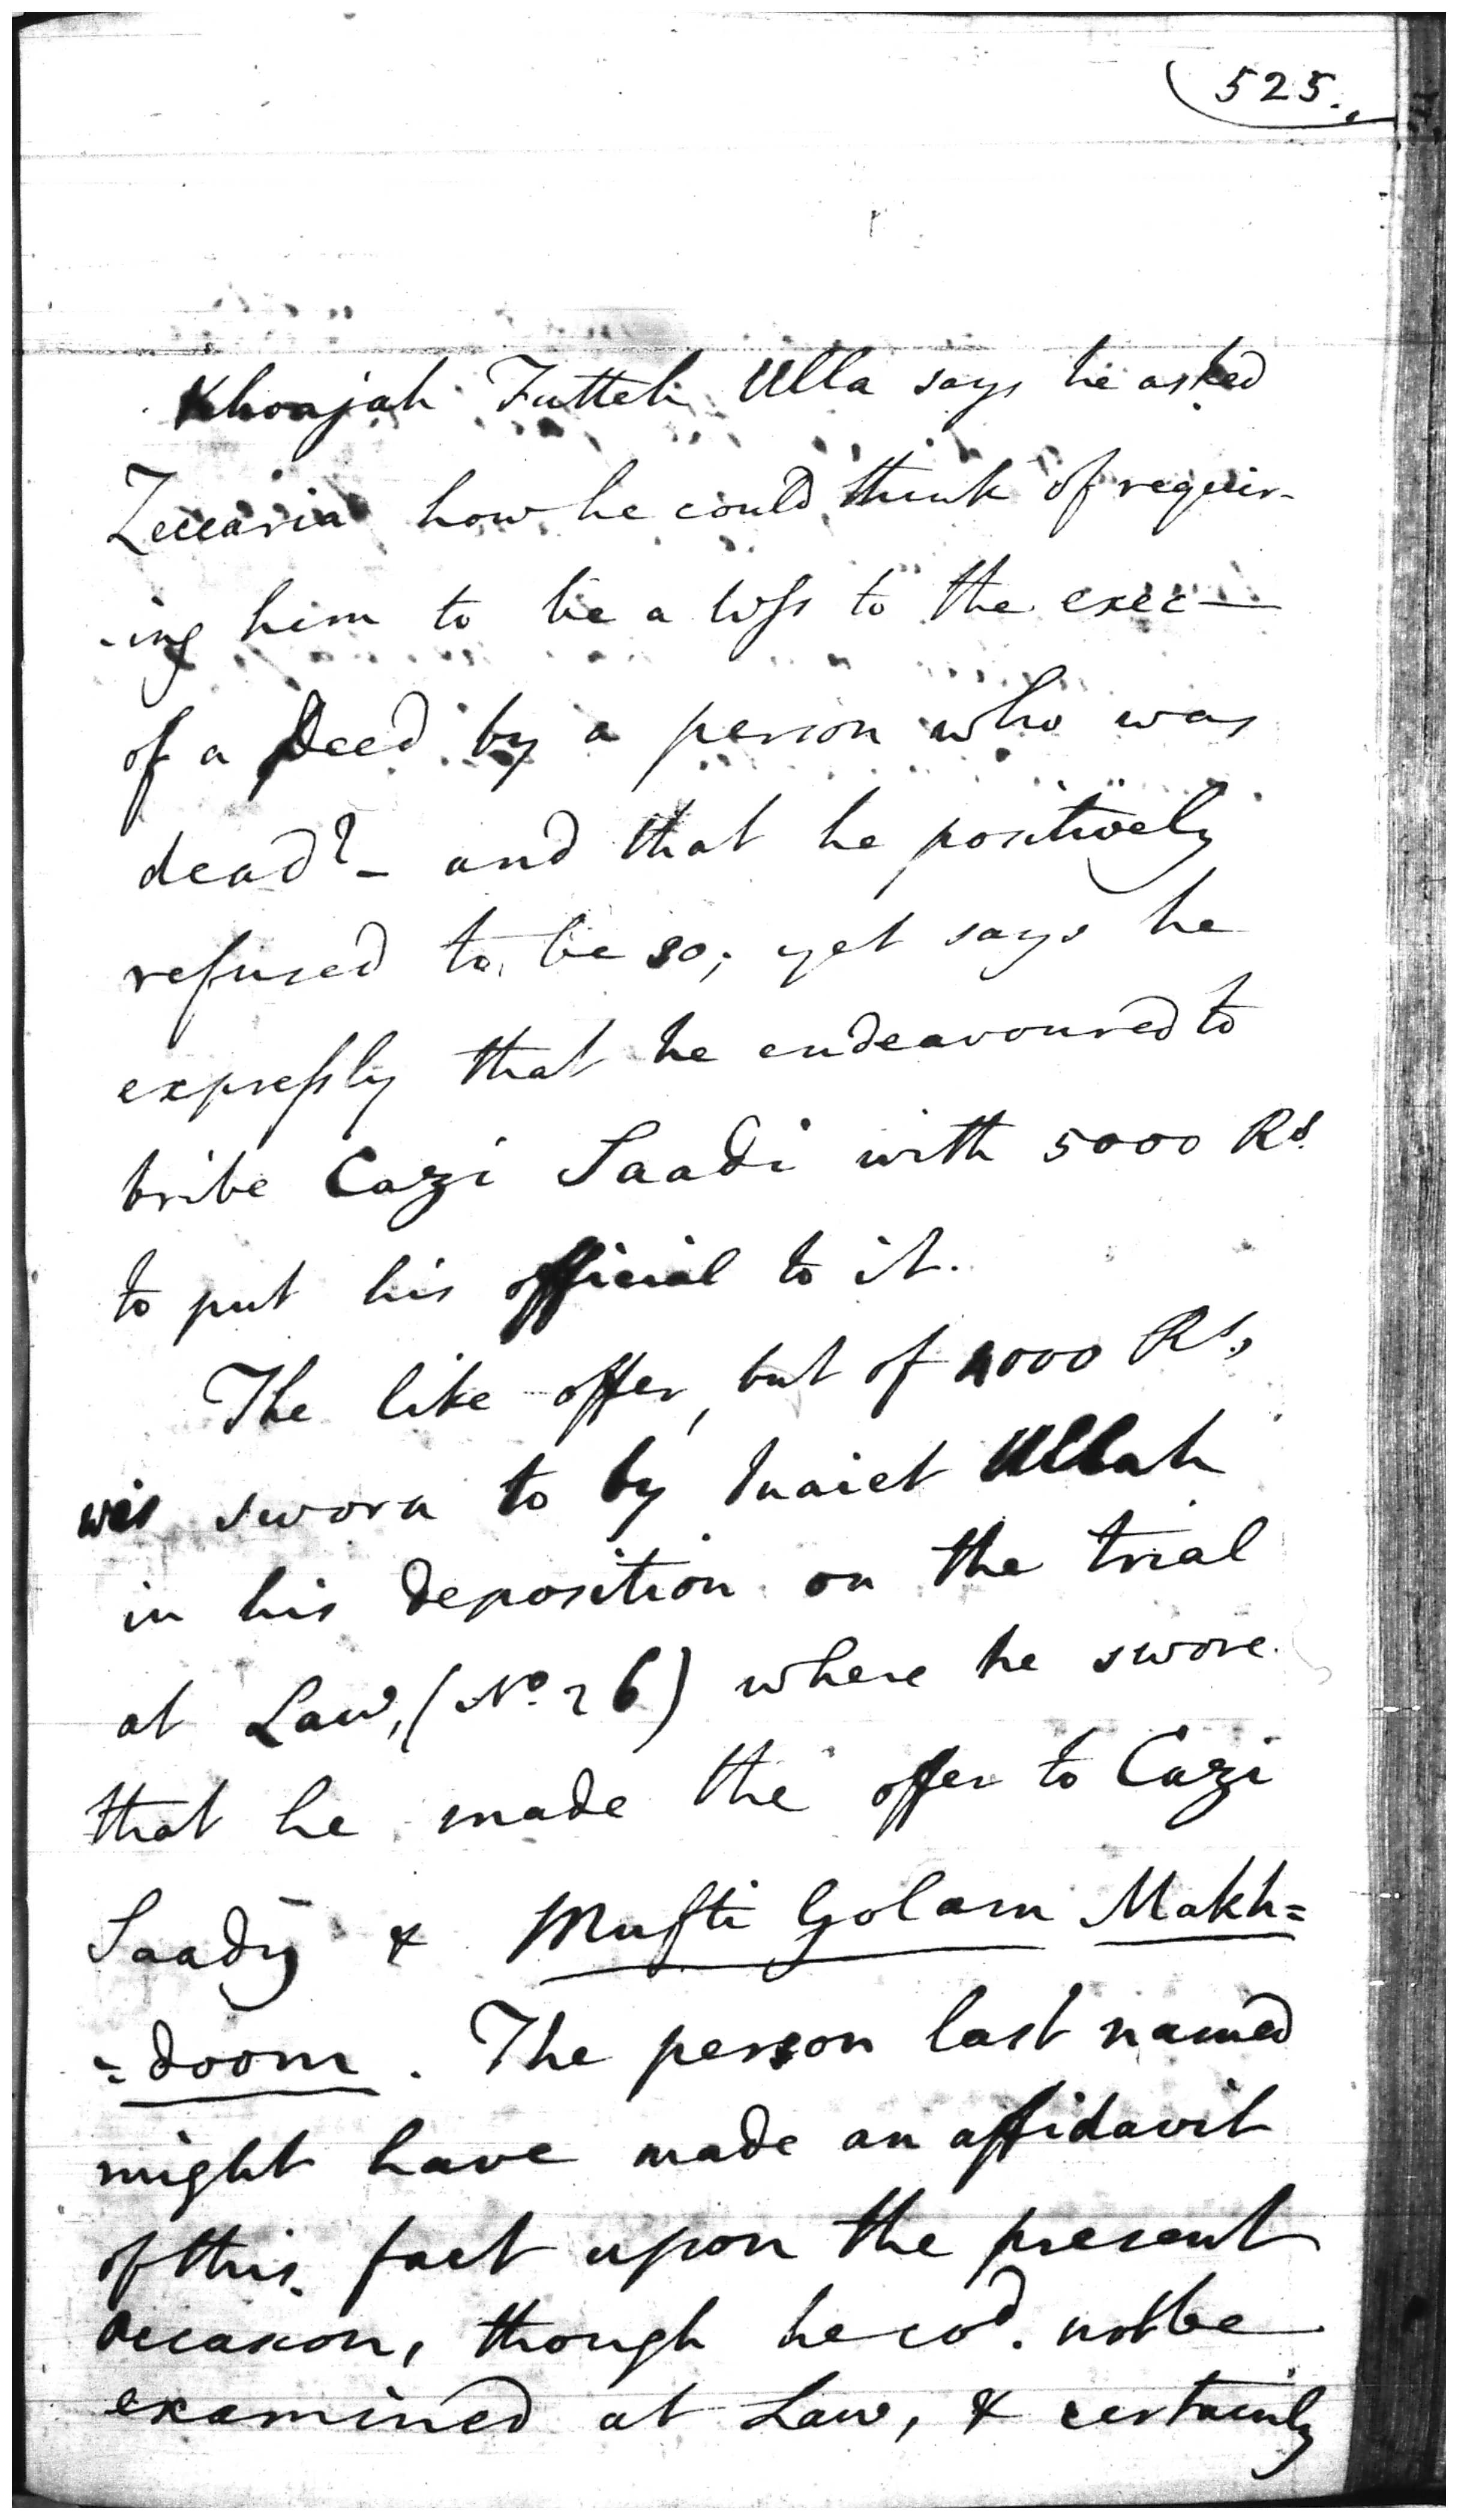 525.
Khoajah Futteh Ulla says he asked
Zeccaria how he could think of requir-
-ing him to be a wss to the exec—
of a Deed by a person who was
dead? - and that he positively
refused to be so; yet says he
expressly that he endeavoured to
bribe Cazi Saadi with 5000 Rs.
to put his official to it.
The like offer, but of 4000 Rs,
was sworn to by Inaiet Ullah
in his deposition on the trial
at Law, (No. 26) where he swore
that he made the offer to Cazi
Saady & Mufti Golam Makh=
=doom. The person last named
might have made an affidavit
of this fact upon the present
occasion, though he cod. not be
examined at Law, & certainly